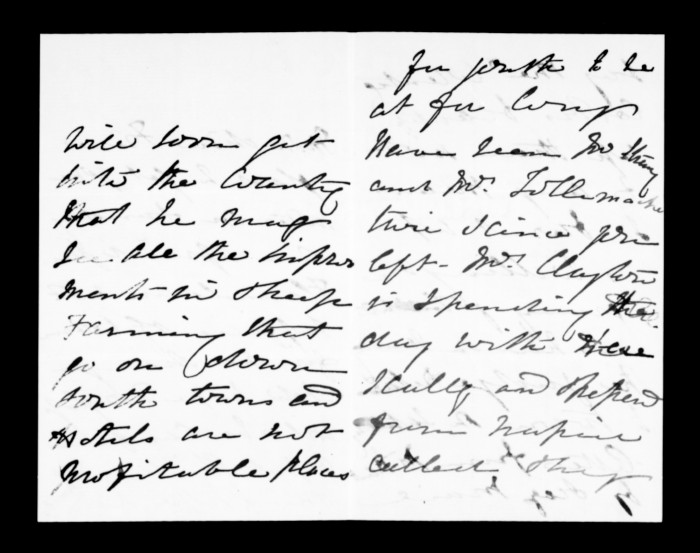 will soon get
into the County
that he may
See all the improve
ments in Sheep
Farming that
go on down
south towns and
Hotels are not
profitable places
for youth to be
at for long
Have seen Mr
and Mr. Tollemache
twice Since you
left - Mr. Clayton
is Spending the
day with
Scully and
from Napier
called they